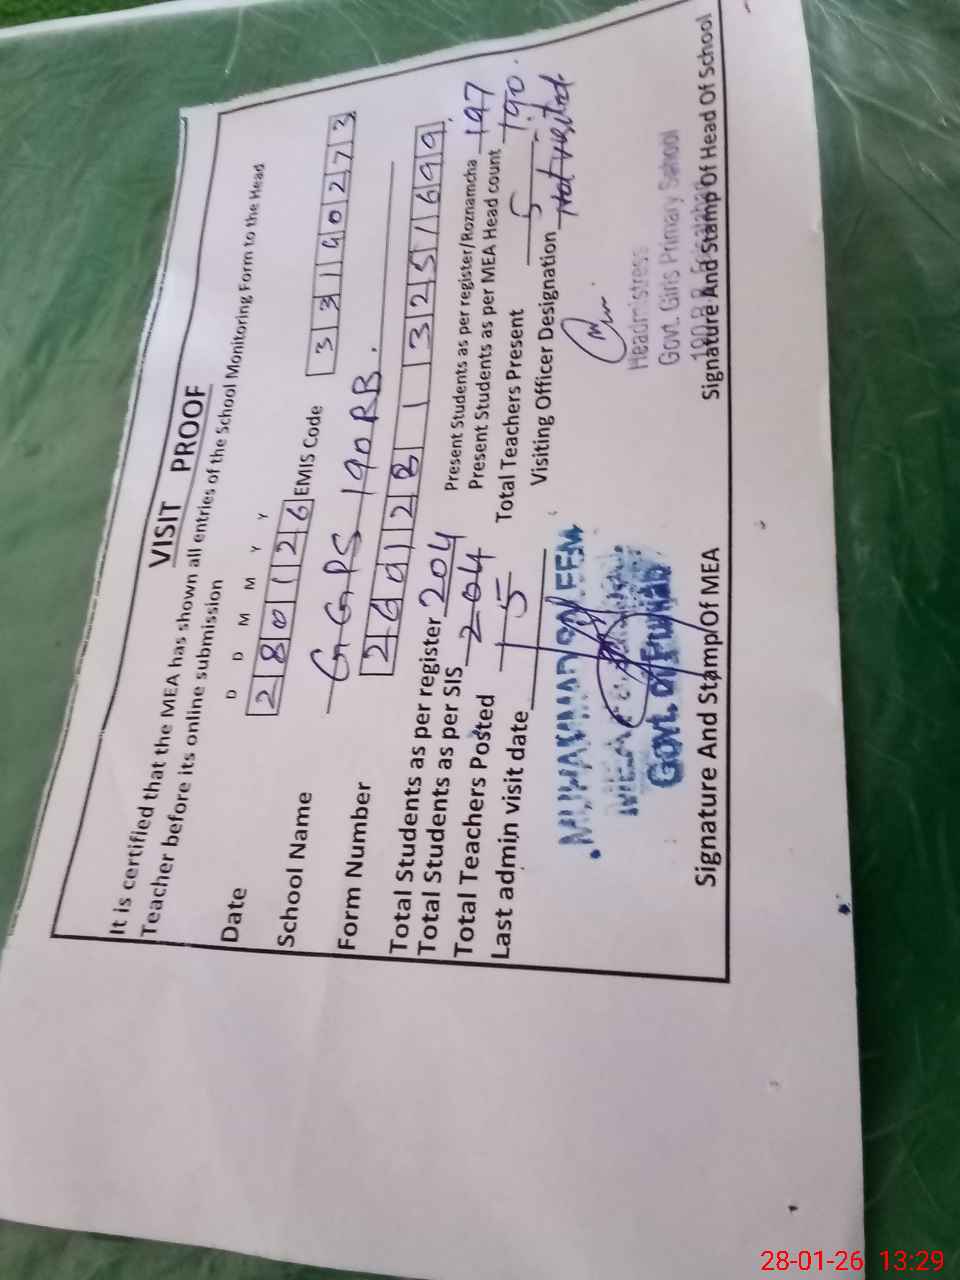 VISIT PROOF
It is certified that the MEA has shown all entries of the School Monitoring Form to the Head
Teacher before its online submission
D D M M Y Y
Date 2 8 0 1 2 6 EMIS Code 3 3 1 4 0 2 7 3
School Name GGPS 190 RB.
Form Number 2 6 0 1 2 8 1 3 2 5 1 6 9 9
Total Students as per register 204 Present Students as per register/Roznamcha 197
Total Students as per SIS 204 Present Students as per MEA Head count 190.
Total Teachers Posted 5 Total Teachers Present 5
Last admin visit date Visiting Officer Designation Not visited.
MUHAMMAD
MEA
Govt. of Punjab
Headmistress
Govt. Girls Primary School
190 R.B. Faisalabad
Signature And Stamp Of MEA Signature And Stamp Of Head Of School
28-01-26 13:29